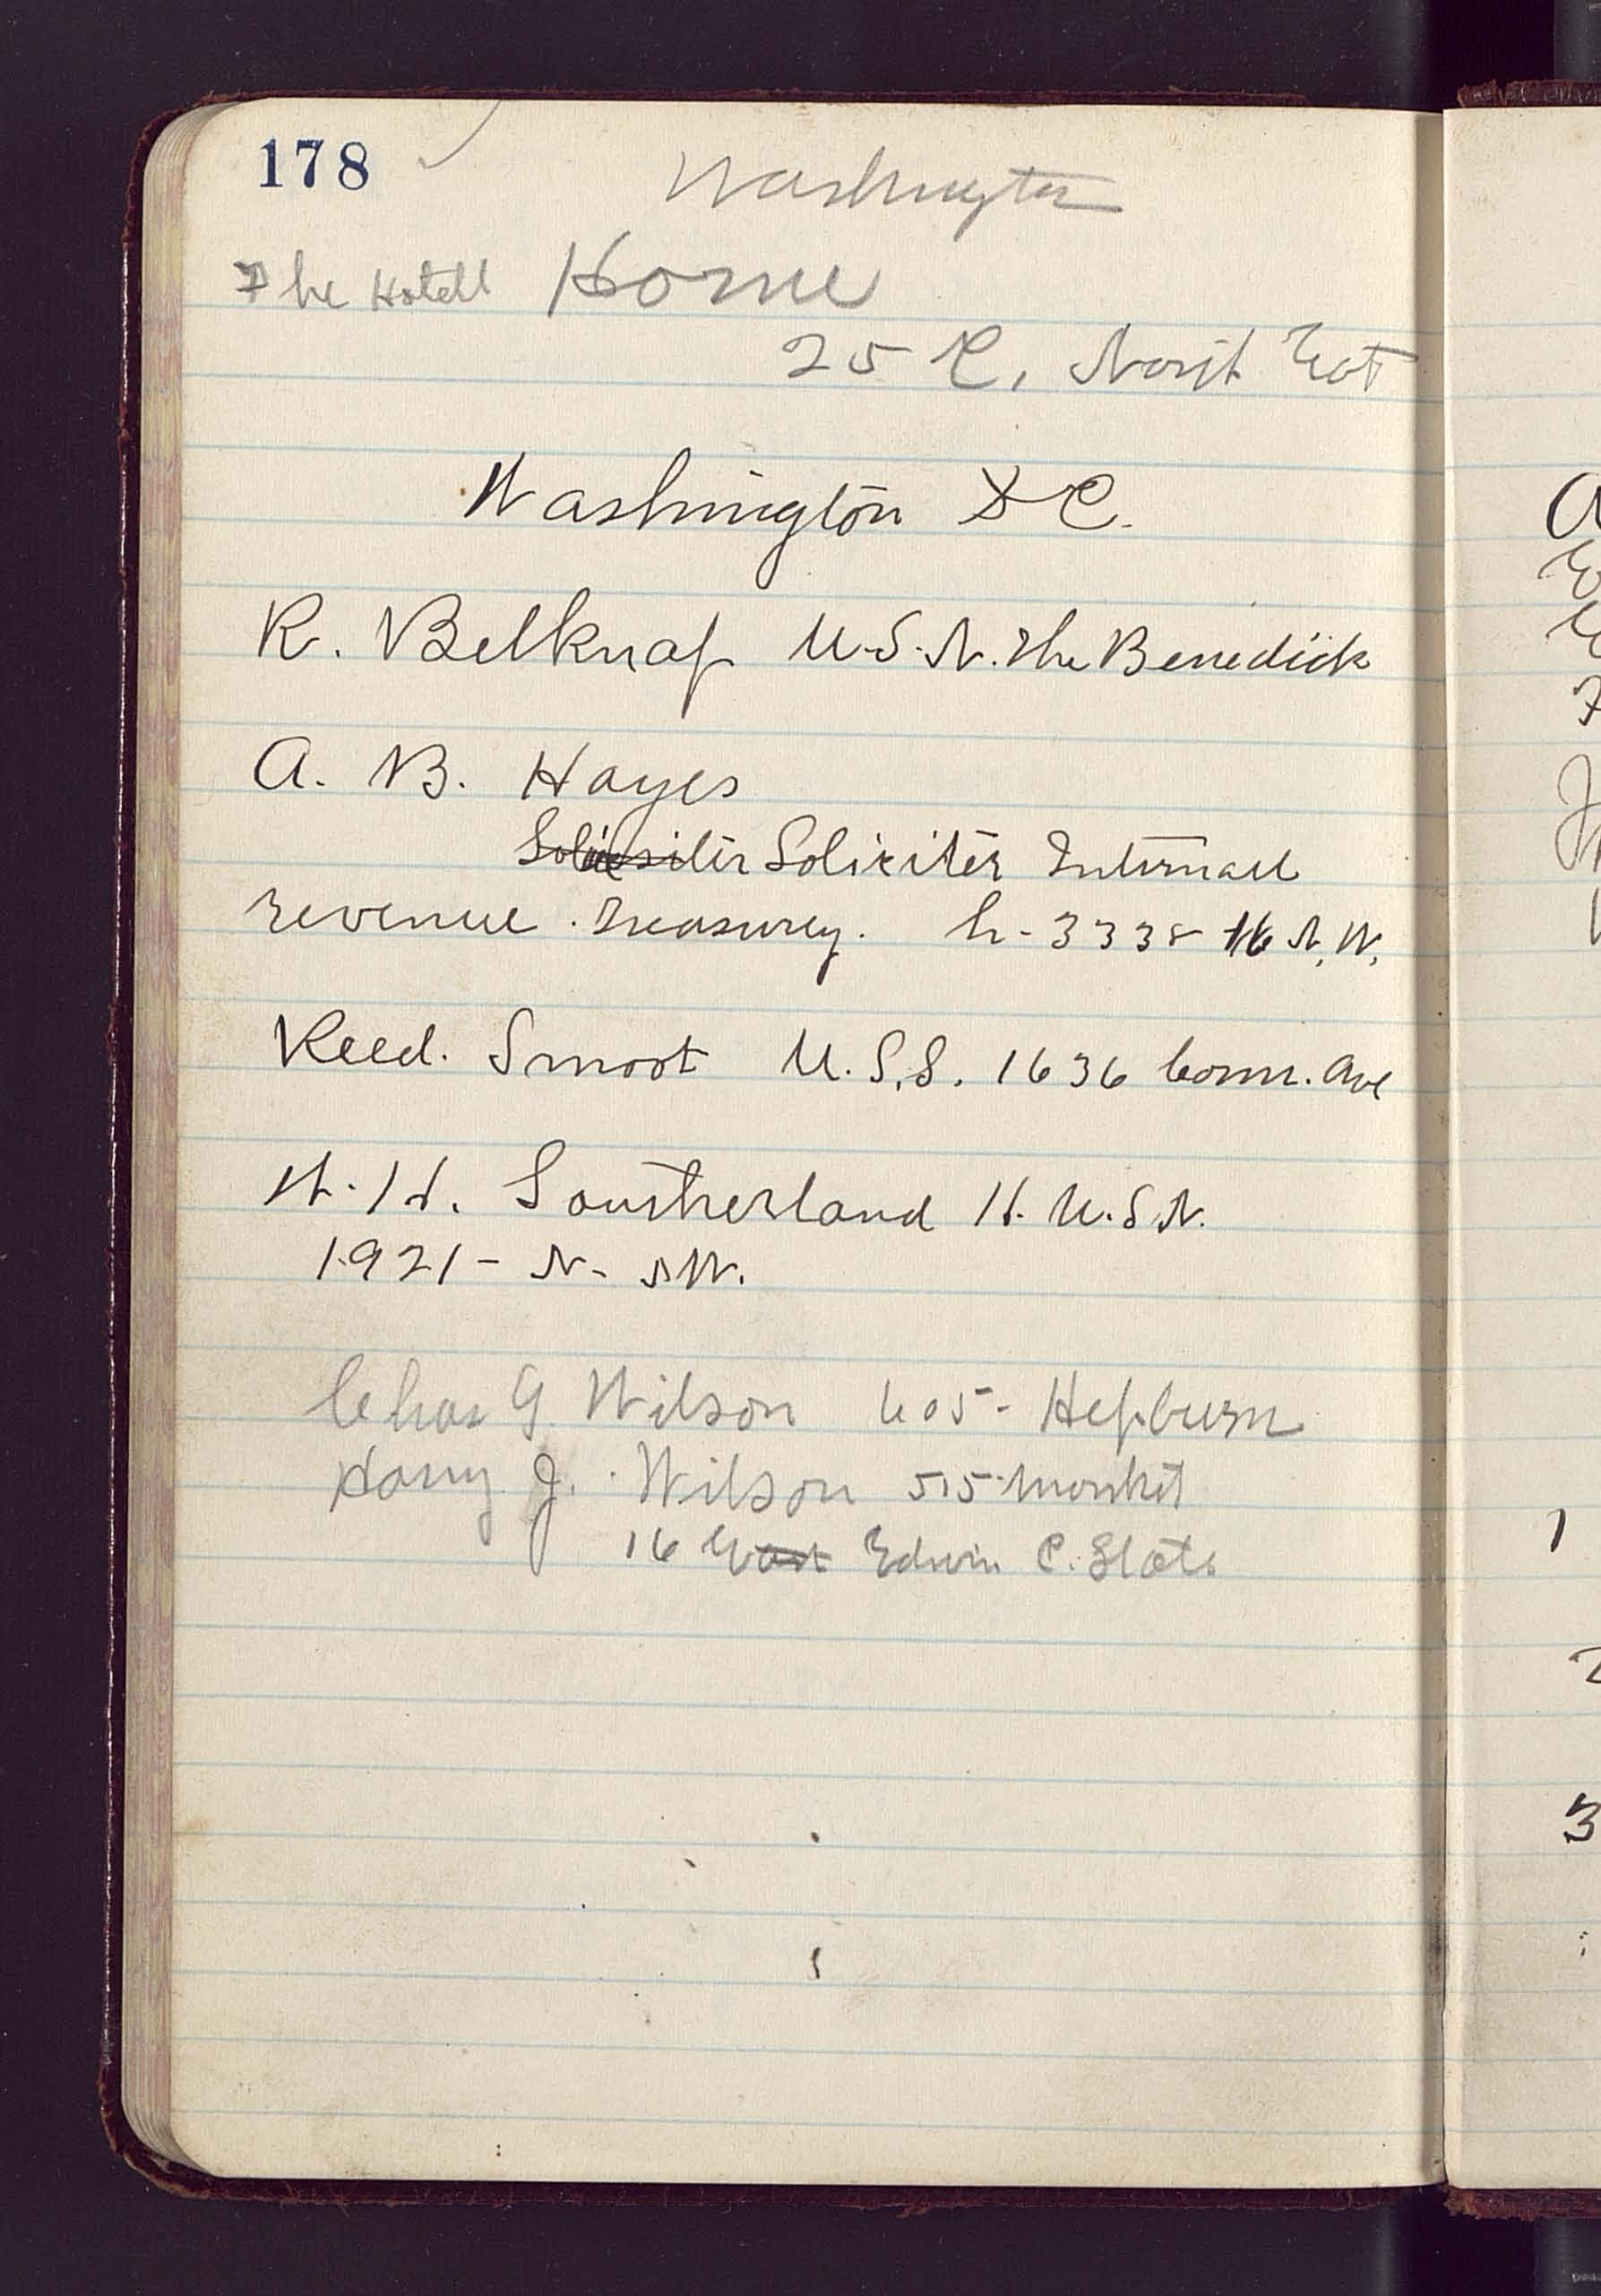 178
Washington
The Hotell Home
25 C, North East
Washington DC.
R. Belknap U.S.N. The Benedick
A. B. Hayes
Solicitor Internall
revenue Treasurey. h-3338 16 N.W.
Reed. Smoot U.S.S. 1636 Conn. Ave
W. H. Southerland H. U.S.N.
1921 - N - N.W.
Chas G. Wilson 605 - Hepburn
Harry J. Wilson 515 Market
16 East Edwin C. Slate
A
1
2
3